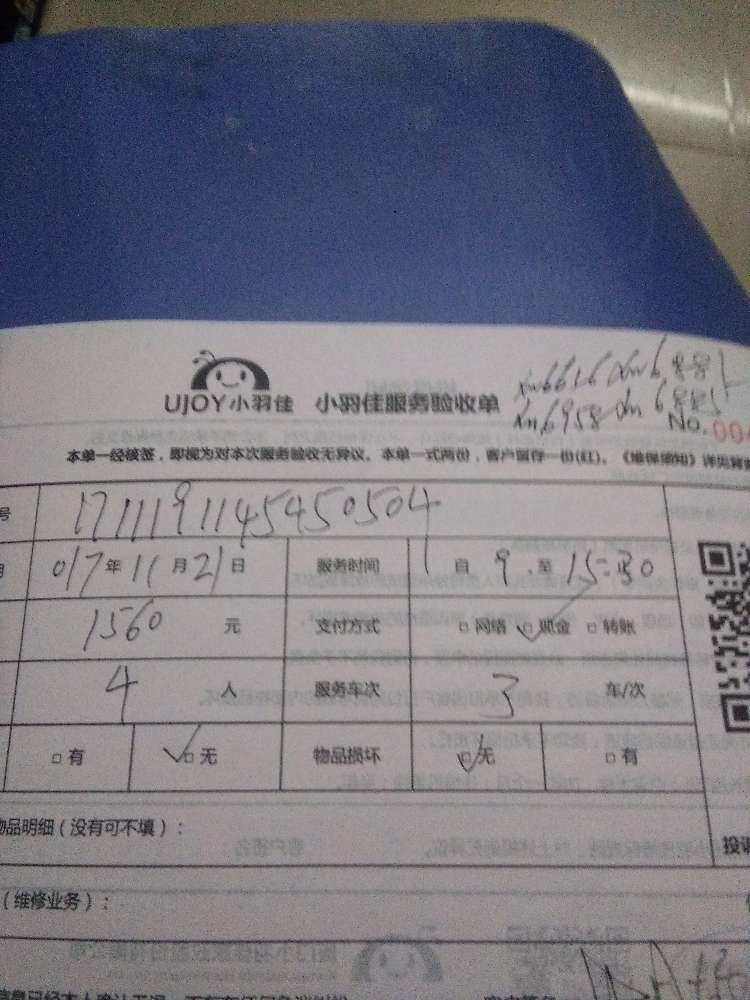 UJOY小羽佳 小羽佳服务验收单
No. 004
本单一经核签，即视为对本次服务验收无异议。本单一式两份，客户留存一份(红)。《维保须知》详见背
号 1711191145450504
017年11月21日 服务时间 自 9 至 15:30
1560 元 支付方式 □网络 □现金 □转账
4 人 服务车次 3 车/次
□有 □无 物品损坏 □无 □有
物品明细（没有可不填）：
投诉
（维修业务）：